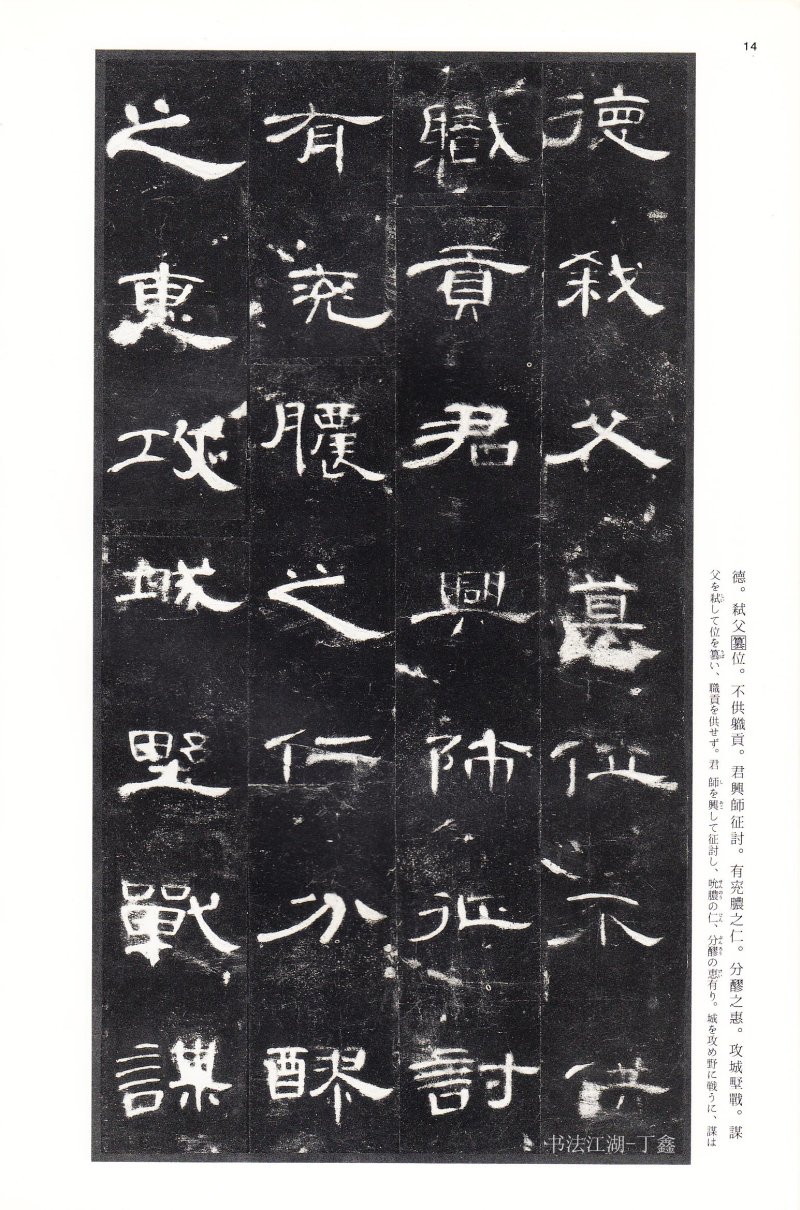 14
德弒父篡位不供
職貢君興師征討
有兖膿之仁分醪
之惠攻城墅戰謀
德。弒父篡位。不供職貢。君興師征討。有兖膿之仁。分醪之惠。攻城墅戰。謀
父を弑して位を篡い、職貢を供せず。君 師を興して征討し、吮膿の仁、分醪の恵有り。城を攻め野に戦うに、謀は
书法江湖-丁鑫